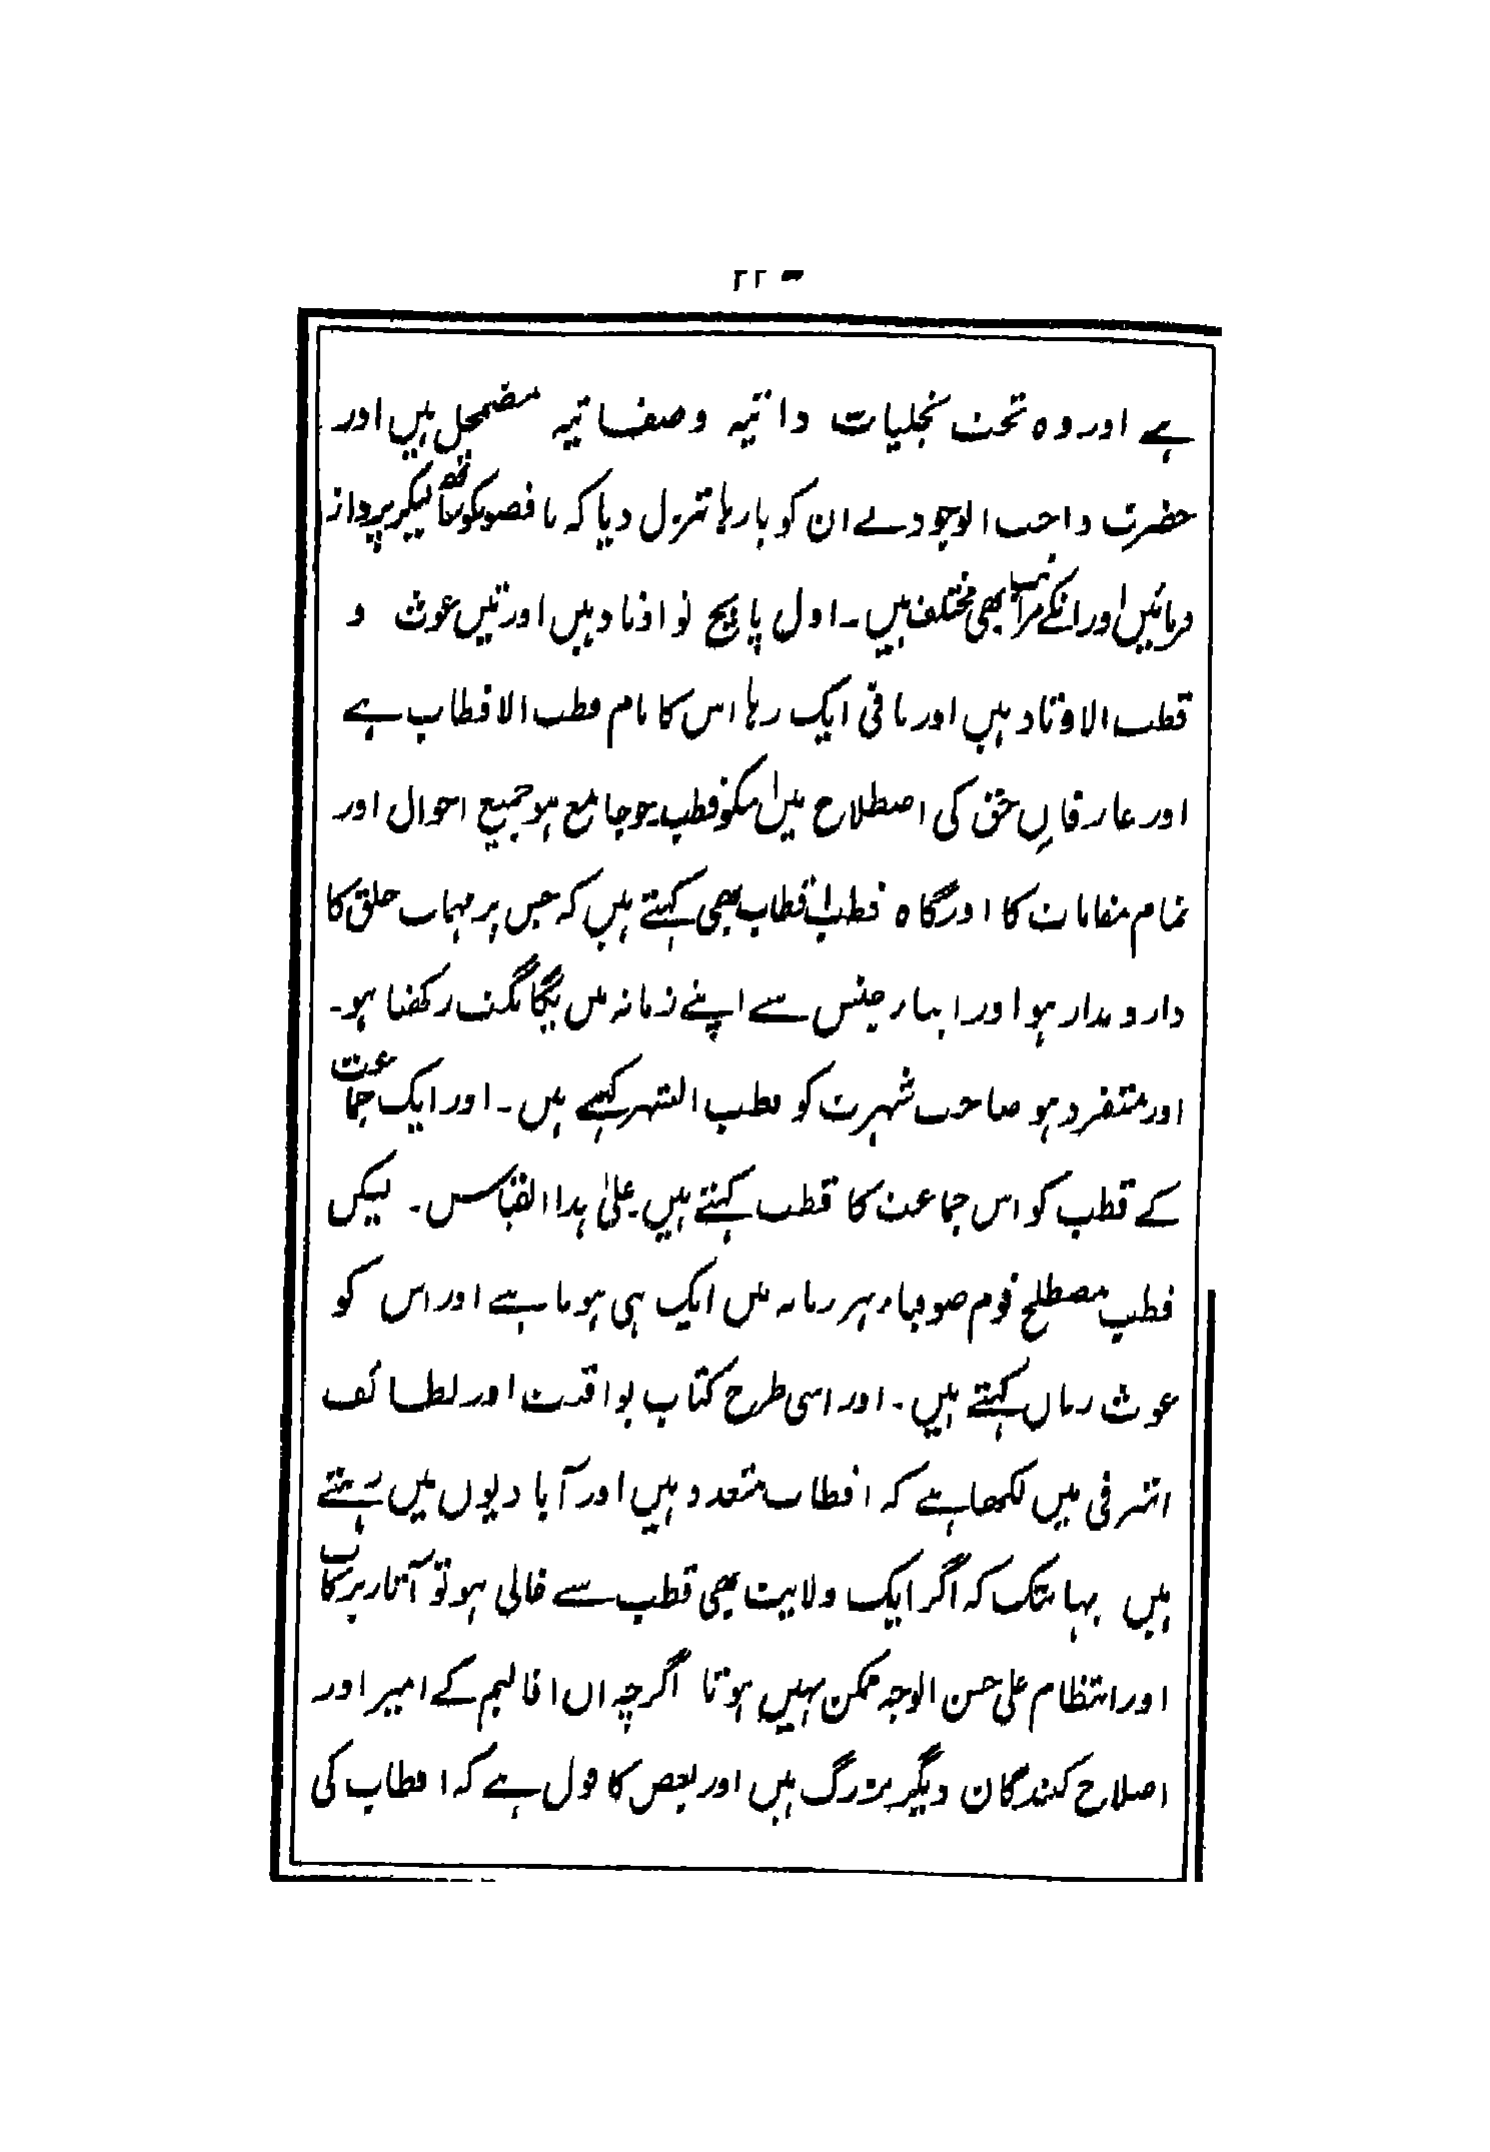 ۲۲
ہے اور وہ تحت تجلیات ذاتیہ وصفاتیہ مضمحل ہیں اور
حضرت واجب الوجود نے ان کو بارہا تنزل دیا کہ ناقصوں کو ساتھ لیکر پرواز
فرمائیں اور انکے مراتب بھی مختلف ہیں۔ اول پانچ تو اوتاد ہیں اور تین غوث و
قطب الاوتاد ہیں اور باقی ایک رہا اس کا نام قطب الاقطاب ہے
اور عارفانِ حق کی اصطلاح میں قطب جو جامع ہو جمیع احوال اور
تمام مقامات کا اور گاہ قطب اقطاب بھی کہتے ہیں کہ جس پر مہمات خلق کا
دار و مدار ہو اور ابنار جنس سے اپنے زمانہ میں یگانگت رکھتا ہو۔
اور متفرد ہو صاحب شہرت کو قطب الشہر کہتے ہیں۔ اور ایک جماعت
کے قطب کو اس جماعت کا قطب کہتے ہیں۔ علیٰ ہذا القیاس۔ لیکن
قطب مصطلح قوم صوفیاء ہر زمانہ میں ایک ہی ہوتا ہے اور اس کو
غوث زماں کہتے ہیں۔ اور اسی طرح کتاب یواقیت اور لطائف
اشرفی میں لکھا ہے کہ اقطاب متعدد ہیں اور آبادیوں میں رہتے
ہیں یہانتک کہ اگر ایک ولایت بھی قطب سے خالی ہو تو آثار برکات
اور انتظام علی حسن الوجہ ممکن نہیں ہوتا اگرچہ ان اقالیم کے امیر اور
اصلاح کنندگان دیگر بزرگ ہیں اور بعض کا قول ہے کہ اقطاب کی